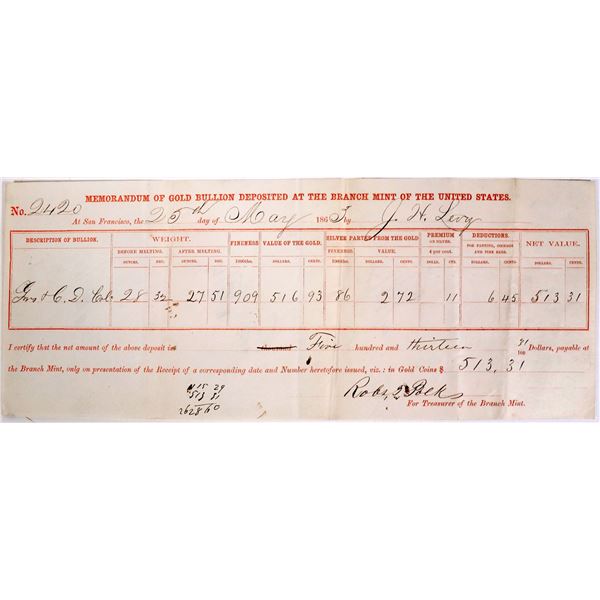 MEMORANDUM OF GOLD BULLION DEPOSITED AT THE BRANCH MINT OF THE UNITED STATES.
No. 2420 At San Francisco, the 25th day of May 1865, by J. H. Levy
DESCRIPTION OF BULLION. WEIGHT. FINENESS VALUE OF THE GOLD. SILVER PARTED FROM THE GOLD PREMIUM ON SILVER. DEDUCTIONS. NET VALUE.
BEFORE MELTING. AFTER MELTING. FINENESS. VALUE. 4 per cent. FOR PARTING, COINAGE AND FINE BARS.
OUNCES. DEC. OUNCES. DEC. THOUS. DOLLARS. CENTS. THOUS. DOLLARS. CENTS. DOLLS. CTS. DOLLARS. CENTS. DOLLARS. CENTS.
28 32 27 51 909 516 93 86 2 72 11 6 45 513 31
I certify that the net amount of the above deposit is thousand Five hundred and thirteen 31/100 Dollars, payable at
the Branch Mint, only on presentation of the Receipt of a corresponding date and Number heretofore issued, viz.: in Gold Coins $ 513,31
15 29
513 31
2628 60
For Treasurer of the Branch Mint.